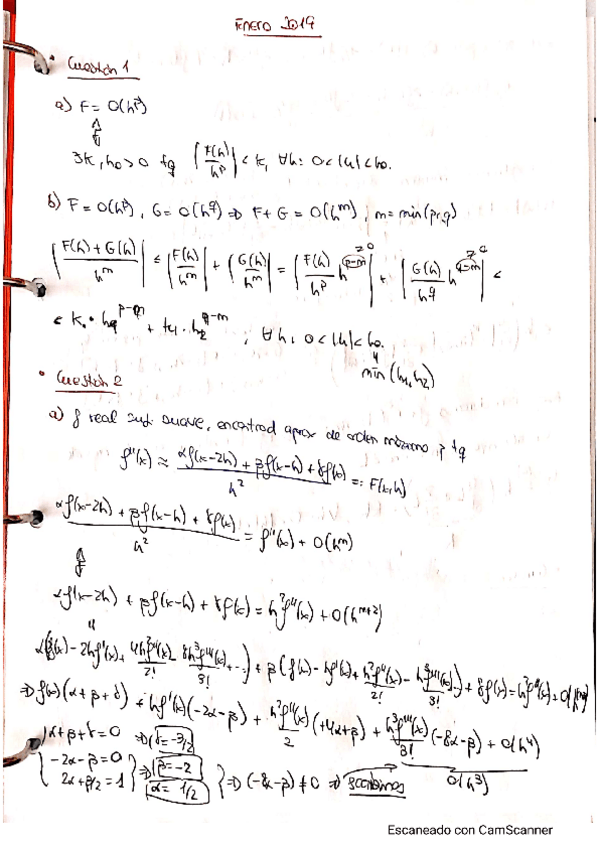 ENERO 2019
• Cuestión 1
a) F = O(h^p)
⇕
∃K, h₀ > 0 tq |F(h)/h^p| < K, ∀h: 0 < |h| < h₀.
b) F = O(h^p), G = O(h^q) ⇒ F + G = O(h^m), m = min(p,q)
|(F(h) + G(h))/h^m| ≤ |F(h)/h^m| + |G(h)/h^m| = |F(h)/h^p h^(p-m)| + |G(h)/h^q h^(q-m)| <
; ∀h, 0 < |h| < h₀
min(h₁,h₂)
• Cuestión 2
a) f real suf. suave, encontrad aprox de orden máximo p tq
f''(x) ≈ (αf(x-2h) + βf(x-h) + γf(x))/h² =: F(x,h)
(αf(x-2h) + βf(x-h) + γf(x))/h² = f''(x) + O(h^m)
⇕
αf(x-2h) + βf(x-h) + γf(x) = h²f''(x) + O(h^(m+2))
"
α(f(x) - 2hf'(x) + 4h²f''(x)/2! - 8h³f'''(x)/3! + ...) + β(f(x) - hf'(x) + h²f''(x)/2! - h³f'''(x)/3! ...) + γf(x) = h²f''(x) + O(
⇒ f(x)(α + β + γ) + hf'(x)(-2α - β) + h²f''(x)/2 (+4α + β) + h³f'''(x)/3! (-8α - β) + O(h⁴)
α + β + γ = 0 ⇒ γ = -3/2
O(h³)
-2α - β = 0 ⇒ β = -2
2α + β/2 = 1 α = 1/2 ⇒ (-8α - β) ≠ 0 ⇒
Escaneado con CamScanner